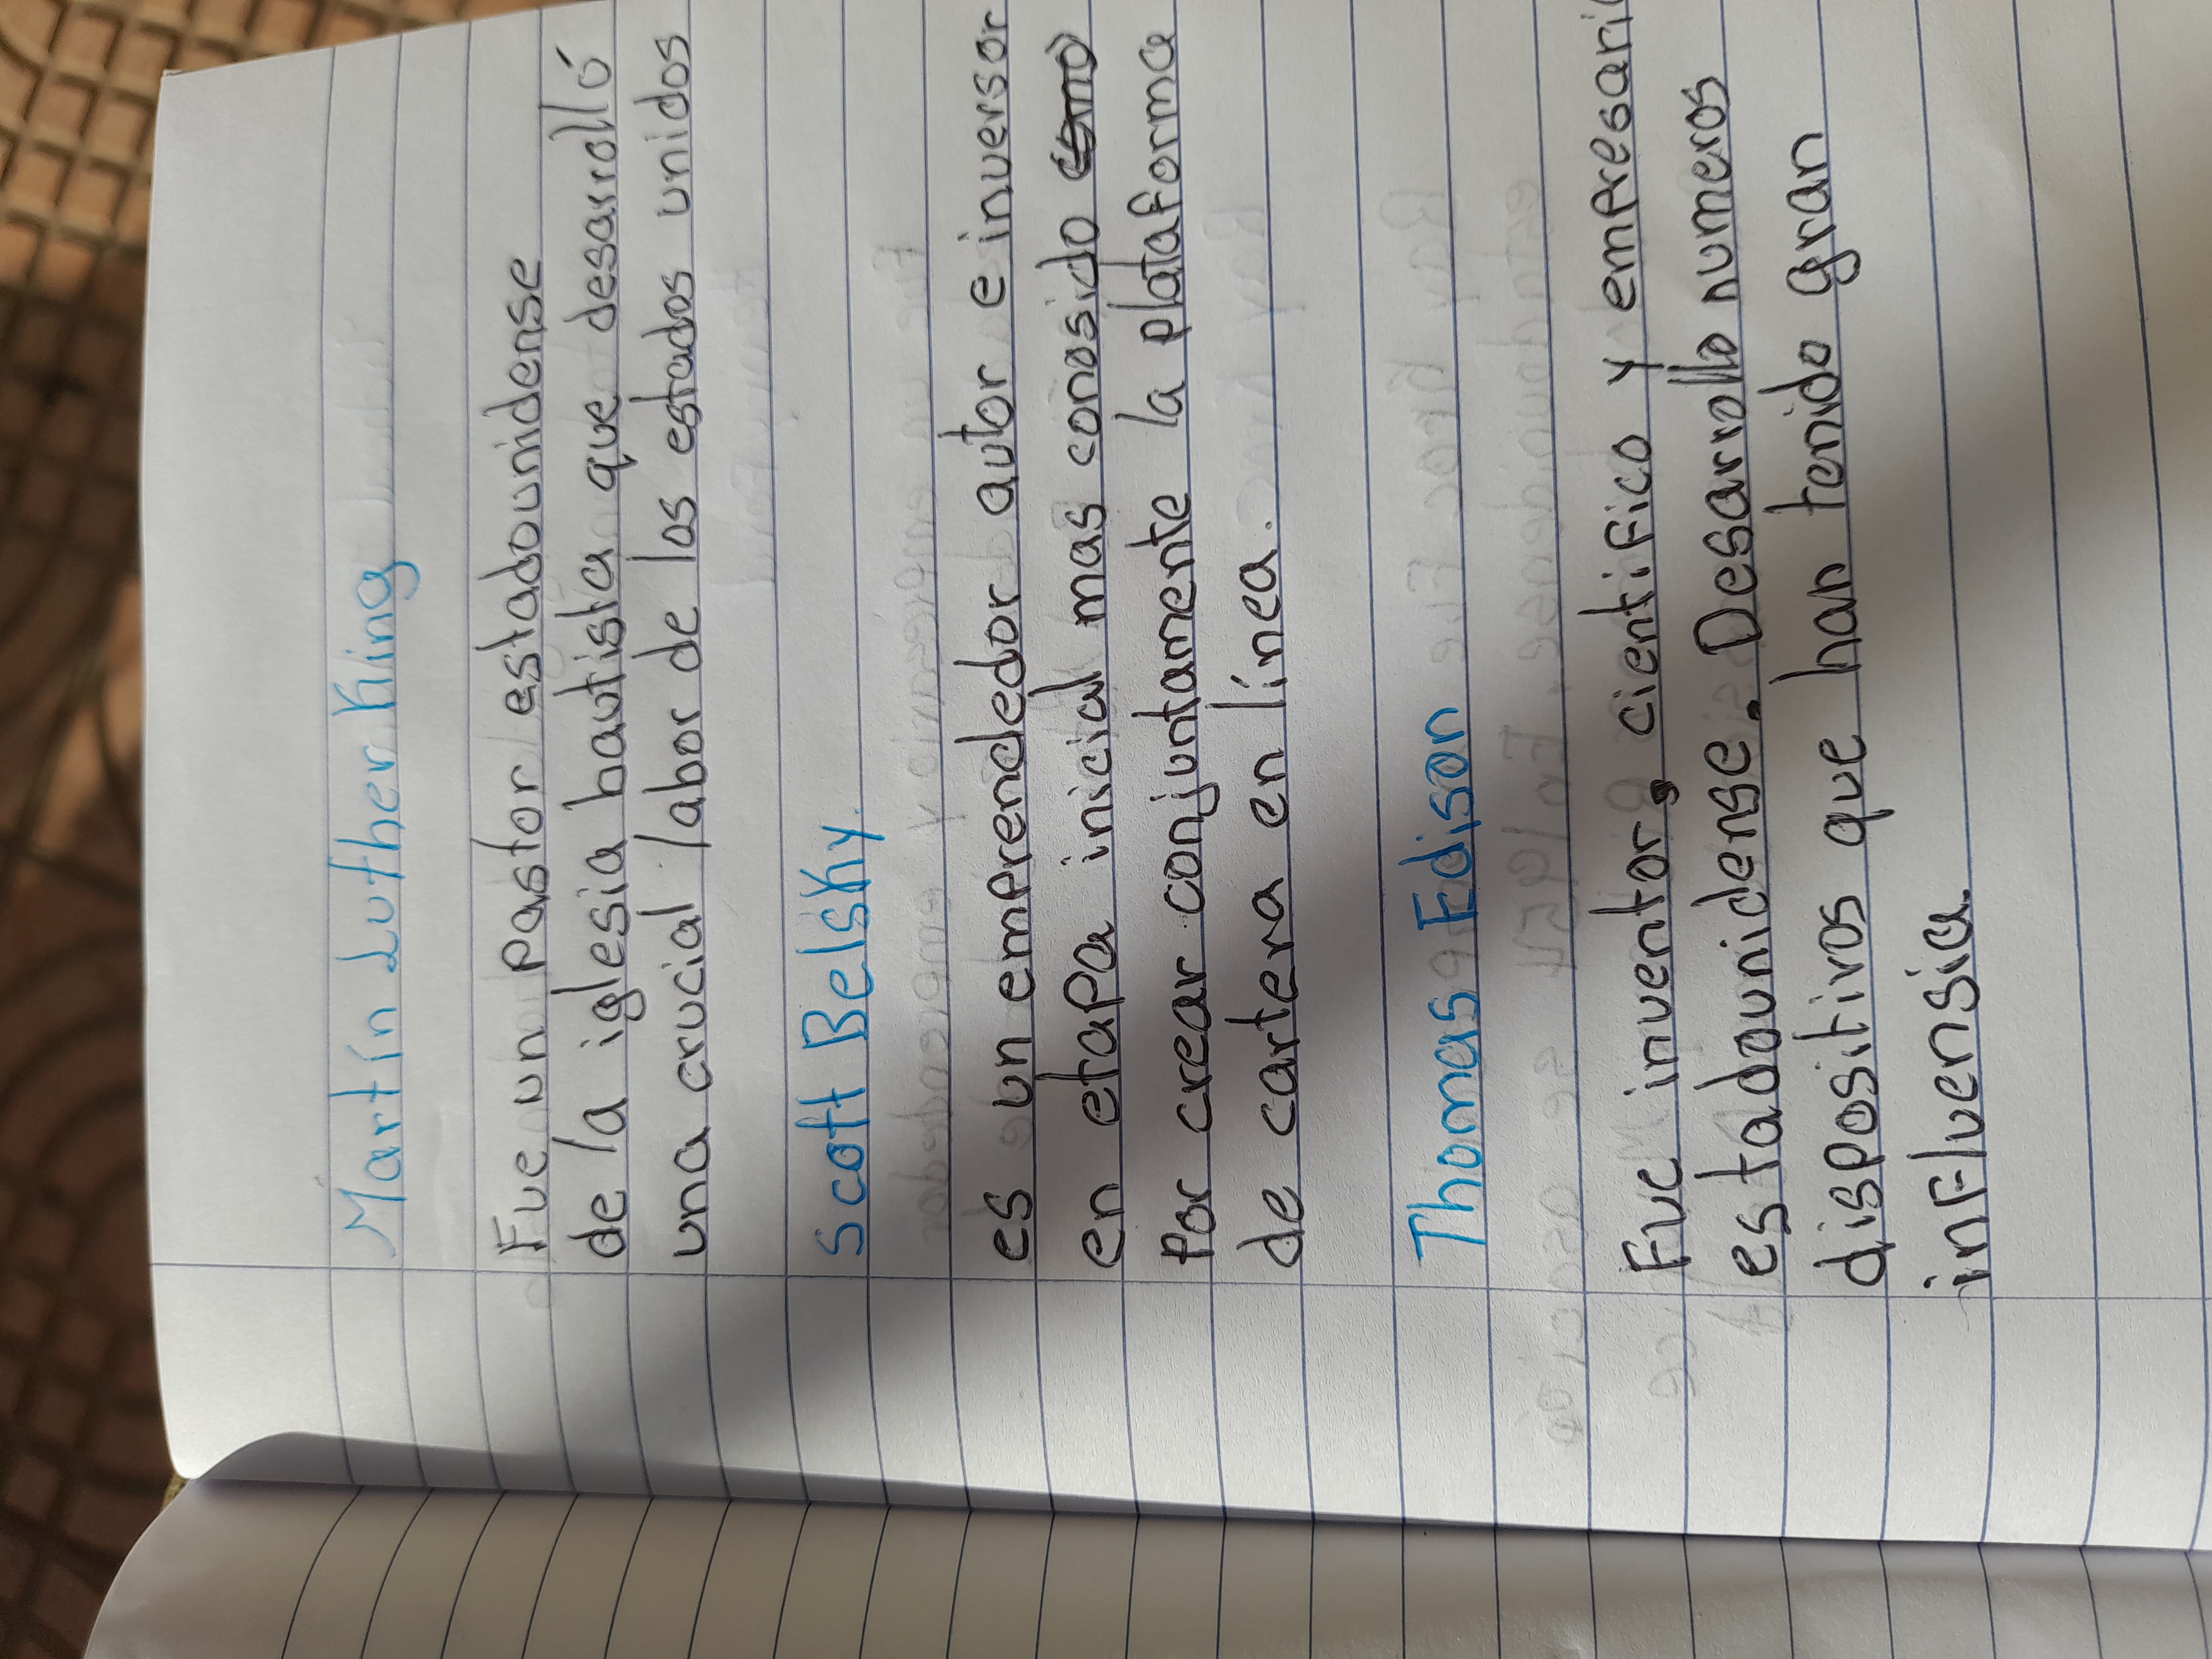 Martín Luther King
Fue un pastor estadounidense
de la iglesia bautista que desarrolló
una crucial labor de los estados unidos
Scott Belsky.
es un emprendedor autor e inversor
en etapa inicial mas conosido
Por crear conjuntamente la plataforma
de cartera en línea.
Thomas Edison
Fue inventor, cientifico y empresari
estadounidense. Desarrollo numeros
dispositivos que han tenido gran
influensia.